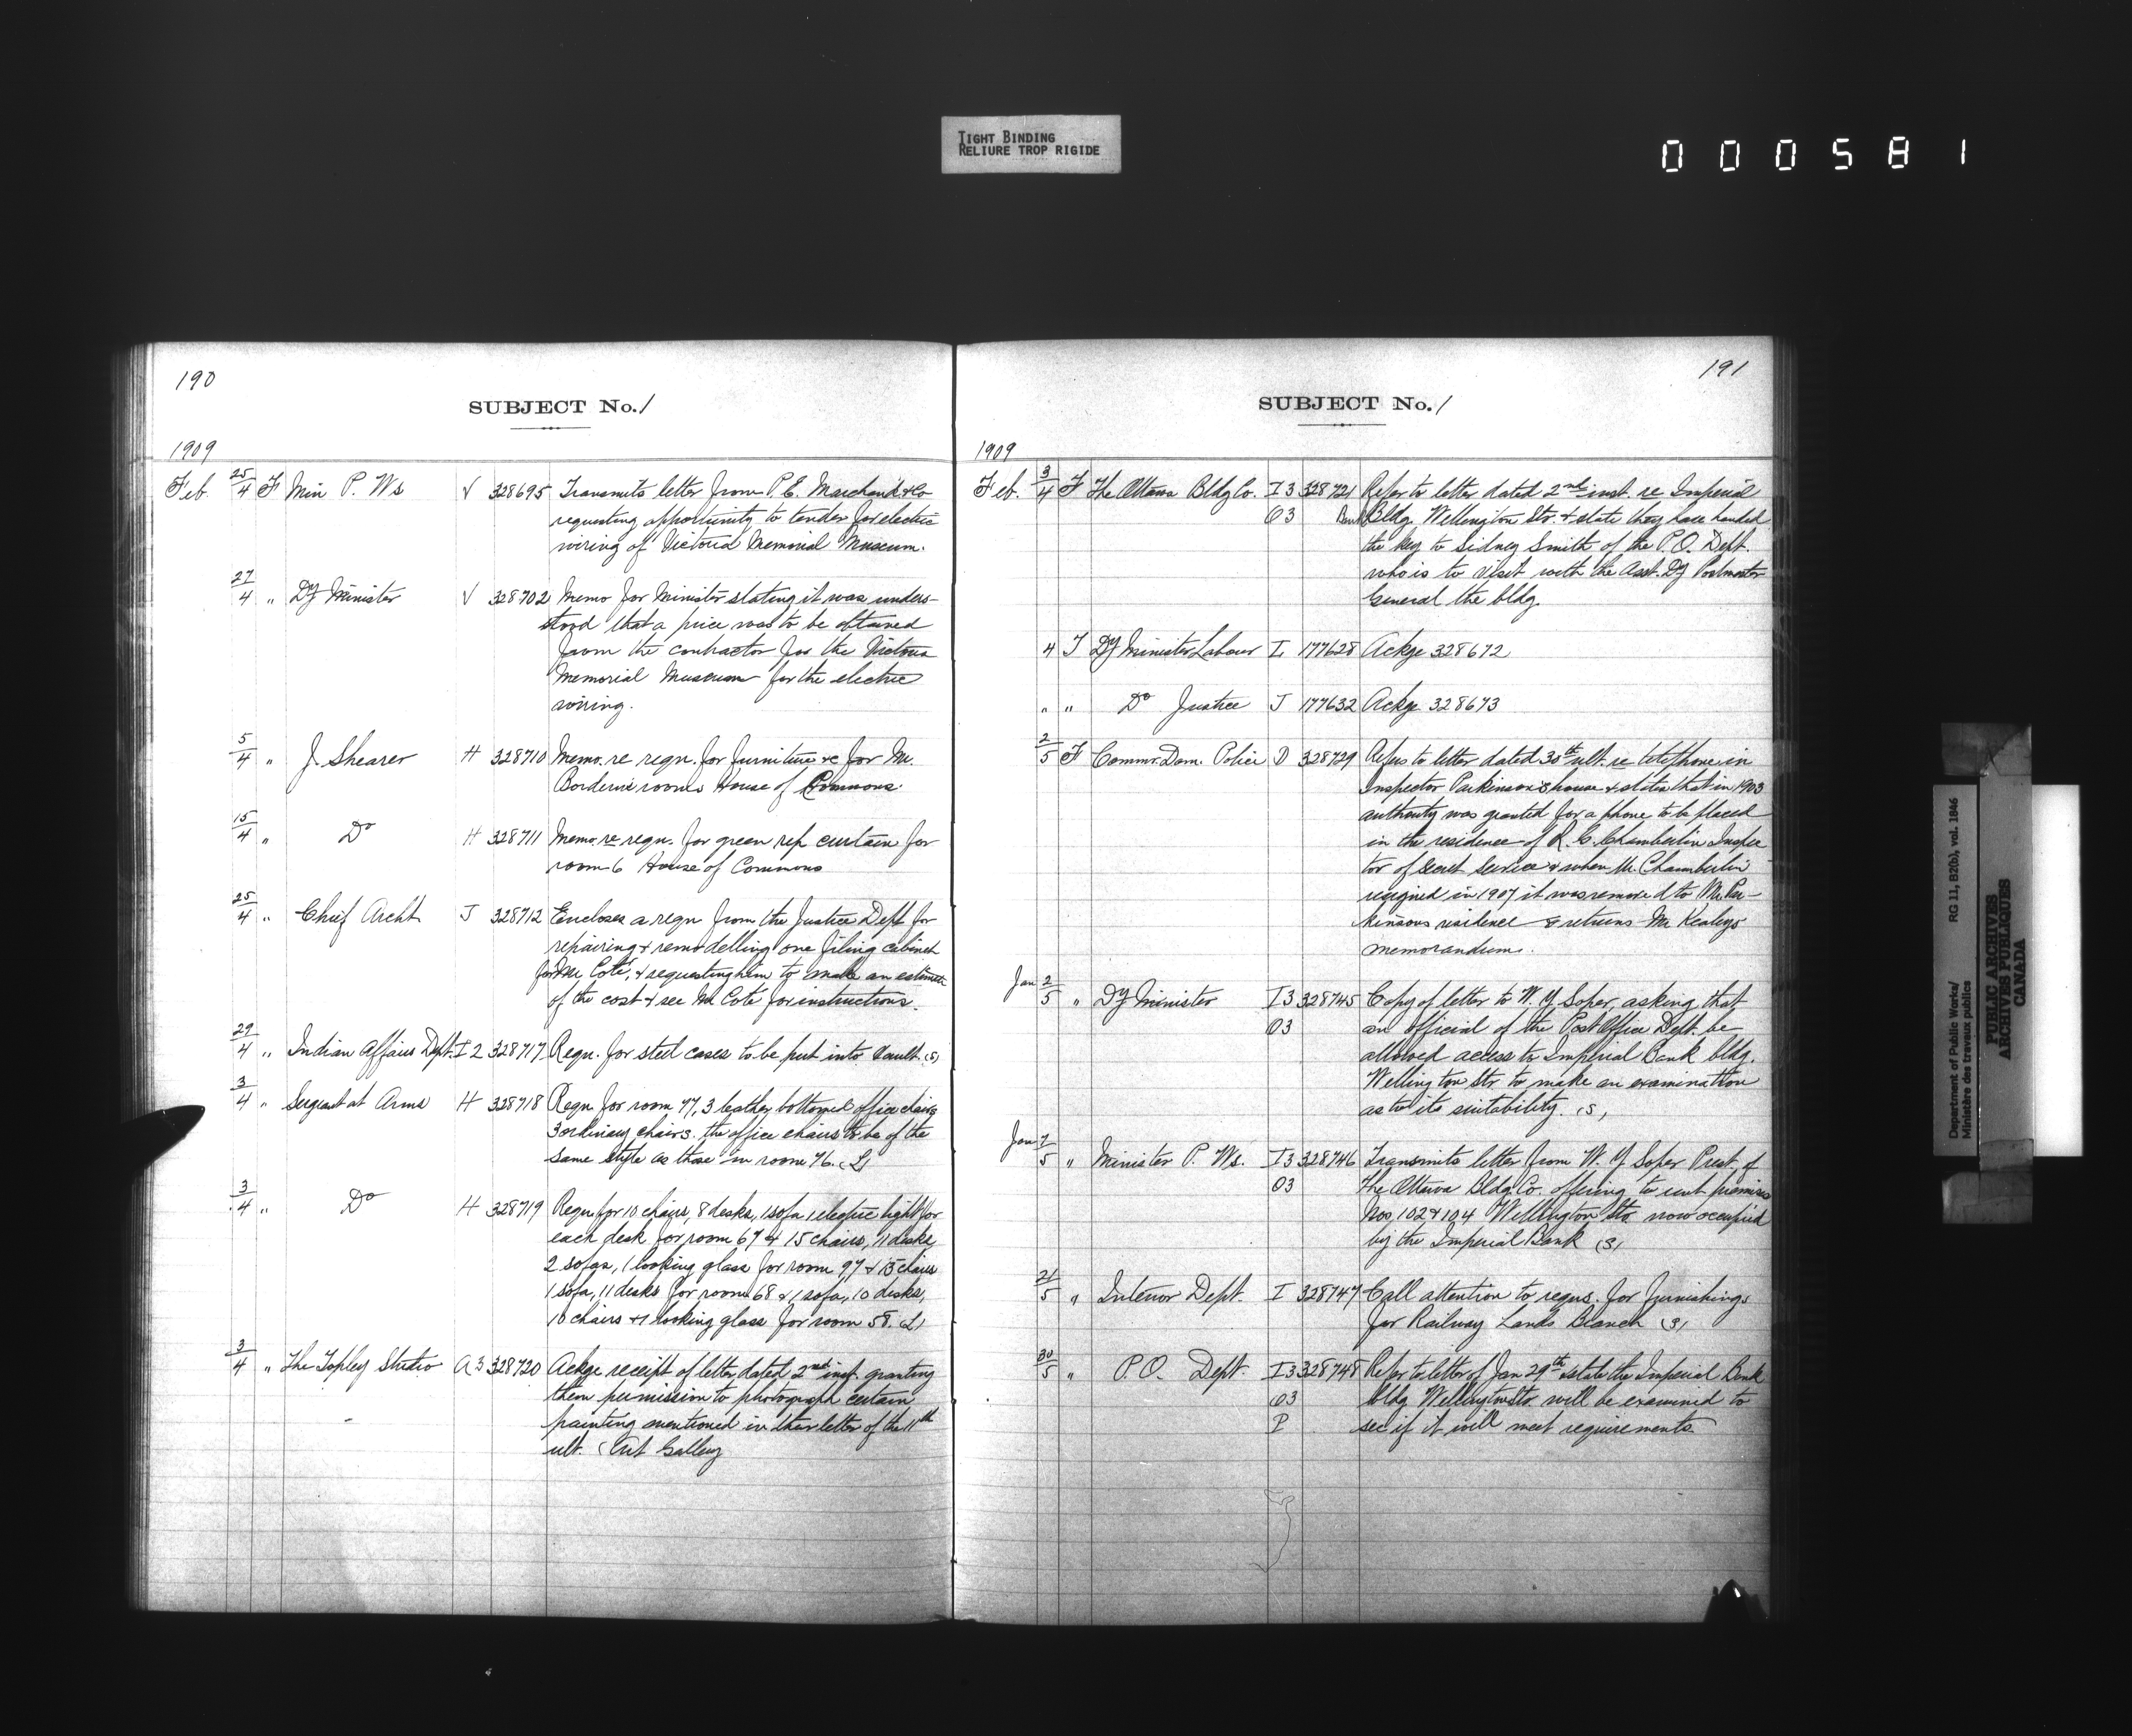 TIGHT BINDING
RELIURE TROP RIGIDE
000581
190
SUBJECT No. 1
1909
Feb. 25/4 F Min P. Ws V 328695 Transmits letter from P. E. Marchand & Co
requesting opportunity to tender for electric
wiring of Victoria Memorial Museum.
27/4 " Dy Minister V 328702 Memo for Minister stating it was unders-
stood that a price was to be obtained
from the contractor for the Victoria
Memorial Museum for the electric
wiring.
5/4 " J. Shearer H 328710 Memo. re reqn. for furniture &c for Mr.
Borden's rooms House of Commons.
15/4 " Do H 328711 Memo. re reqn. for green rep curtain for
room 6 House of Commons
25/4 " Chief Archt J 328712 Encloses a reqn from the Justice Dept for
repairing & remodelling one filing cabinet
for Mr Coté, & requesting him to make an estimate
of the cost & see Mr Coté for instructions.
29/4 " Indian Affairs Dept. I 2 328717 Reqn. for steel cases to be put into vault. (S)
3/4 " Sergeant at Arms H 328718 Reqn for room 77, 3 leather bottomed office chairs
3 ordinary chairs. the office chairs to be of the
same style as those in room 76. (L)
3/4 " Do H 328719 Reqn for 10 chairs, 8 desks, 1 sofa 1 electric light for
each desk for room 67 & 15 chairs, 11 desks,
2 sofas, 1 looking glass for room 97 & 15 chairs
1 sofa, 11 desks for room 68 & 1 sofa, 10 desks,
10 chairs & 1 looking glass for room 58. (L)
3/4 " The Topley Studio A 3 328720 Ackge receipt of letter dated 2nd inst. granting
them permission to photograph certain
painting mentioned in their letter of the 11th
ult. (Art Gallery
191
SUBJECT No. 1
1909
Feb. 3/4 F The Ottawa Bldg Co. I 3 328721 Refer to letter dated 2nd inst. re Imperial
O3 Bank Bldg. Wellington Str. & state they have handed
the key to Sidney Smith of the P.O. Dept.
who is to visit with the Asst. Dy Postmaster
General the bldg.
4 T Dy Minister Labour L 177628 Ackge 328672
" " Do Justice J 177632 Ackge 328673
2/5 F Commr. Dom. Police D 328729 Refers to letter dated 30th ult. re telephone in
Inspector Parkinson's house & states that in 1903
authority was granted for a phone to be placed
in the residence of R. C. Chamberlin Inspec
tor of Secret Service & when Mr. Chamberlin
resigned in 1907 it was removed to Mr. Par-
kinsons residence & returns Mr Kealeys
memorandum.
Jan 2/5 " Dy Minister I 3 328745 Copy of letter to W. Y Soper, asking that
O3 an official of the Post Office Dept. be
allowed access to Imperial Bank bldg.
Wellington Str. to make an examination
as to its suitability. (S)
Jan 7/5 " Minister P. Ws. I 3 328746 Transmits letter from W. Y Soper Prest. of
O3 The Ottawa Bldg Co. offering to rent premises
Nos 102 & 104 Wellington Str. now occupied
by the Imperial Bank (S)
21/5 " Interior Dept. I 328747 Call attention to reqns. for furnishings
for Railway Lands Branch (S)
30/5 " P.O. Dept. I 3 328748 Refer to letter of Jan 29th & state the Imperial Bank
O3 bldg Wellington Str. will be examined to
P see if it will meet requirements.
Department of Public Works/
Ministère des travaux publics
RG 11, B2(b), vol. 1846
PUBLIC ARCHIVES
ARCHIVES PUBLIQUES
CANADA